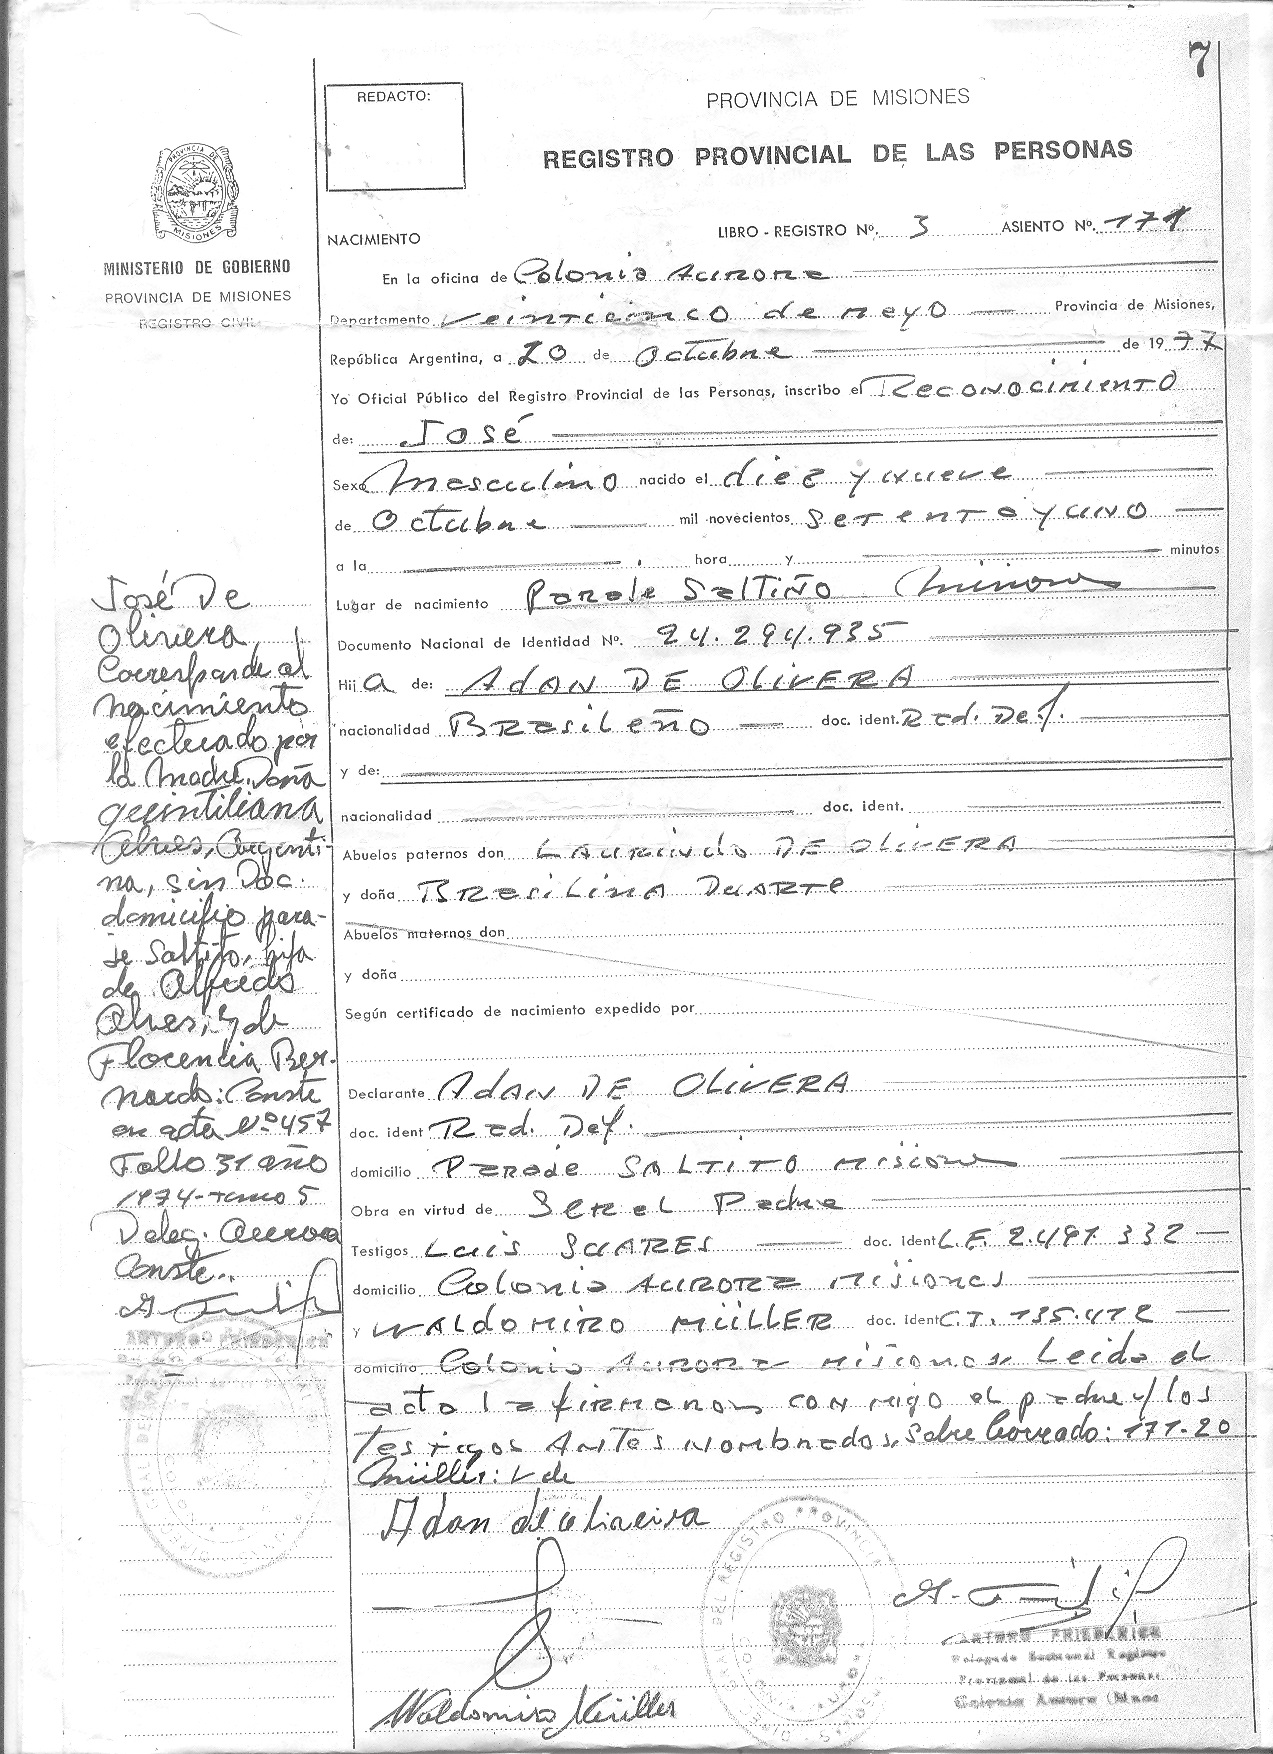 7
REDACTO:
PROVINCIA DE MISIONES
REGISTRO PROVINCIAL DE LAS PERSONAS
PROVINCIA DE
MISIONES
MINISTERIO DE GOBIERNO
PROVINCIA DE MISIONES
REGISTRO CIVIL
NACIMIENTO LIBRO - REGISTRO Nº. 3 ASIENTO Nº. 171
En la oficina de Colonia Aurora
Departamento Veinticinco de Mayo Provincia de Misiones,
República Argentina, a 20 de Octubre de 1977
Yo Oficial Público del Registro Provincial de las Personas, inscribo el Reconocimiento
de: José
Sexo Masculino nacido el diez y nueve
de Octubre mil novecientos setenta y uno
a la hora y minutos
Lugar de nacimiento Paraje Saltiño Misiones
Documento Nacional de Identidad Nº. 24.294.935
Hij a de: ADAN DE OLIVERA
nacionalidad Brasileño doc. ident. Rad. Def.
y de:
nacionalidad doc. ident.
Abuelos paternos don LAURINDO DE OLIVERA
y doña BRASILINA DUARTE
Abuelos maternos don
y doña
Según certificado de nacimiento expedido por
Declarante ADAN DE OLIVERA
doc. ident Rad. Def.
domicilio Paraje SALTITO Misiones
Obra en virtud de Ser el Padre
Testigos Luis SUARES doc. ident L.E. 2.491.332
domicilio Colonia AURORA Misiones
y WALDOMIRO MÜLLER doc. ident C.I. 135.412
domicilio Colonia AURORA Misiones. Leida el
acta la firmaron conmigo el padre y los
testigos Antes Nombrados, Sobre borrado: 171-20
Müller: Vale
Adan de oliveira
Waldomiro Müller
ARTURO FRIEDERICH
Delegado Seccional Registro
Provincial de las Personas
Colonia Aurora (Mnes
José De
Olivera,
Corresponde al
nacimiento
efectuado por
la Madre Doña
Quintiliana
Alves, Argenti-
na, sin Doc.
domicilio para-
je Saltito, hija
de Alfredo
Alves, y de
Florencia Ber-
nardo: Conste
en acta Nº 457
Folio 31 año
1974-tomo 5
Deleg. Aurora
Conste..
ARTURO FRIEDERICH